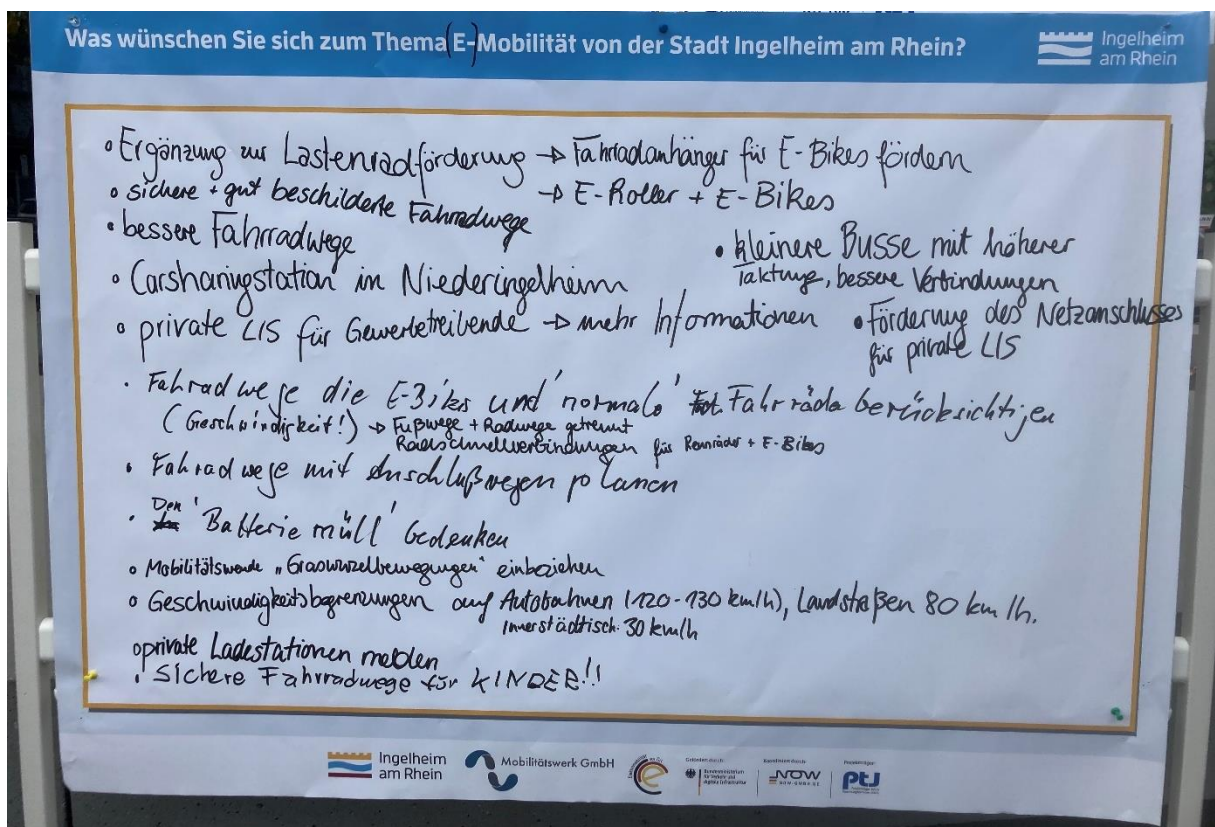 Was wünschen Sie sich zum Thema (E-)Mobilität von der Stadt Ingelheim am Rhein?
Ingelheim
am Rhein
• Ergänzung zur Lastenradförderung → Fahrradanhänger für E-Bikes fördern
→ E-Roller + E-Bikes
• sichere + gut beschilderte Fahrradwege
• bessere Fahrradwege
• kleinere Busse mit höherer
Taktung, bessere Verbindungen
• Carsharingstation in Niederingelheim
• private LIS für Gewerbetreibende → mehr Informationen
• Förderung des Netzanschlusses
für private LIS
• Fahradwege die E-Bikes und 'normale' Fahrräder berücksichtigen
(Geschwindigkeit!) → Fußwege + Radwege getrennt
Radschnellverbindungen für Rennräder + E-Bikes
• Fahradwege mit Anschlußwegen planen
• Den 'Batterie müll' Gedenken
• Mobilitätswende „Graswurzelbewegungen" einbeziehen
• Geschwindigkeitsbegrenzungen auf Autobahnen (120-130 km/h), Landstraßen 80 km/h.
Innerstädtisch: 30 km/h
• private Ladestationen melden
• Sichere Fahrradwege für KINDER!!
Ingelheim
am Rhein
Mobilitätswerk GmbH
Gefördert durch:
Bundesministerium
für Verkehr und
digitale Infrastruktur
Koordiniert durch:
NOW
NOW-GMBH.DE
Projektträger:
PtJ